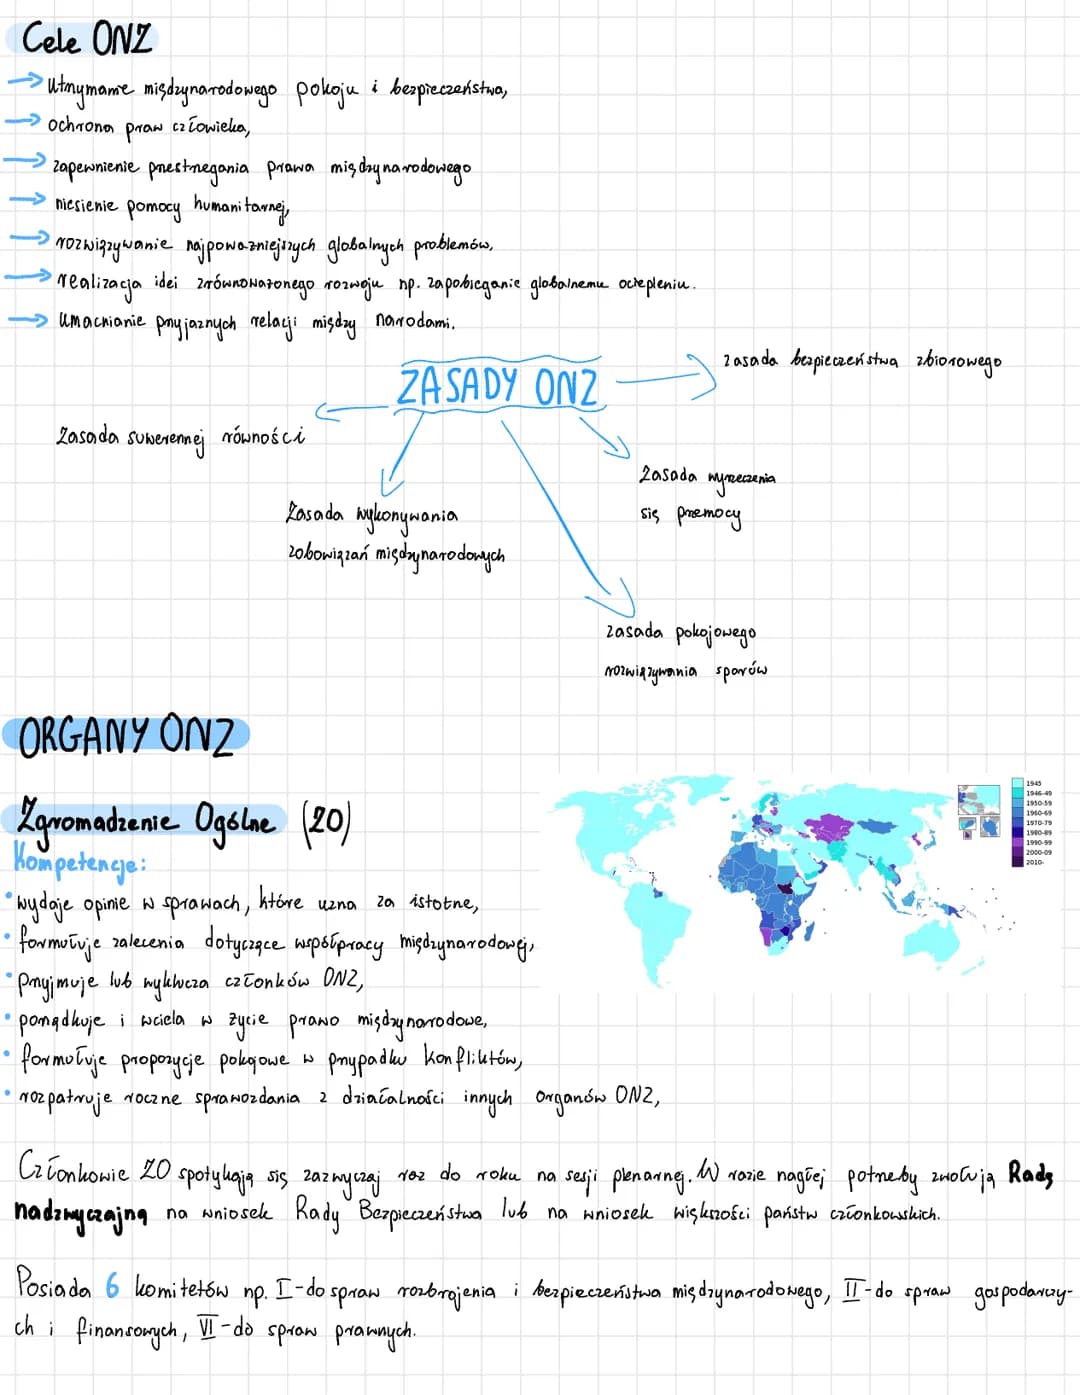 Cele ONZ
→ Utrzymanie międzynarodowego pokoju i bezpieczeństwa,
→ ochrona praw człowieka,
→ zapewnienie przestrzegania prawa międzynarodowego
→ niesienie pomocy humanitarnej,
→ rozwiązywanie najpoważniejszych globalnych problemów,
→ realizacja idei zrównoważonego rozwoju np. zapobieganie globalnemu ociepleniu.
→ umacnianie przyjaznych relacji między narodami.
ZASADY ONZ
zasada bezpieczeństwa zbiorowego
Zasada suwerennej równości
Zasada wyrzeczenia
się przemocy
Zasada wykonywania
zobowiązań międzynarodowych
zasada pokojowego
rozwiązywania sporów
ORGANY ONZ
Zgromadzenie Ogólne (ZO)
Kompetencje:
• wydaje opinie w sprawach, które uzna za istotne,
• formułuje zalecenia dotyczące współpracy międzynarodowej,
• przyjmuje lub wyklucza członków ONZ,
• porządkuje i wciela w życie prawo międzynarodowe,
• formułuje propozycje pokojowe w przypadku konfliktów,
• rozpatruje roczne sprawozdania z działalności innych organów ONZ,
1945
1946-49
1950-59
1960-69
1970-79
1980-89
1990-99
2000-09
2010-
Członkowie ZO spotykają się zazwyczaj raz do roku na sesji plenarnej. W razie nagłej potrzeby zwołują Radę
nadzwyczajną na wniosek Rady Bezpieczeństwa lub na wniosek większości państw członkowskich.
Posiada 6 komitetów np. I-do spraw rozbrojenia i bezpieczeństwa międzynarodowego, II-do spraw gospodarczy-
ch i finansowych, VI-do spraw prawnych.